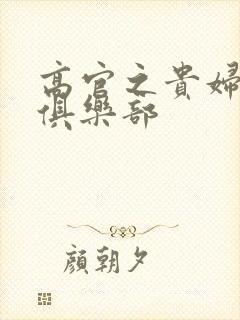 高官之貴婦
俱樂部
顏朝夕